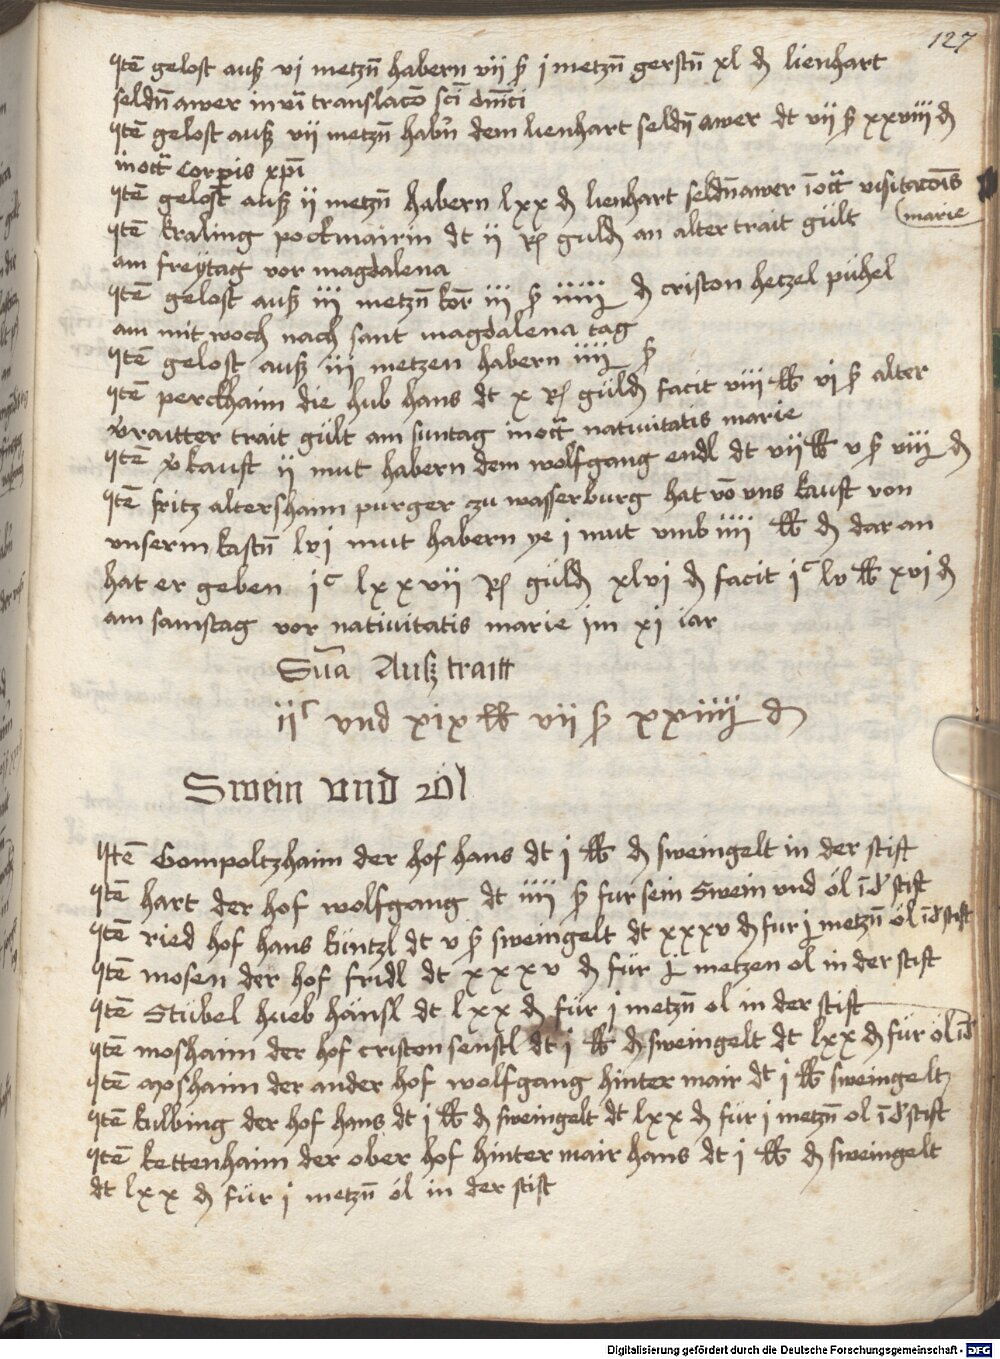 127
Itē gelost auß vi metzn̄ habern vij ß j metzn̄ gerstn̄ xl d lienhart
seldn̄awer in vi͞ translacō sci͞ dnīci
Itē gelost auß vij metzn̄ habn̄ dem lienhart seldn̄awer dt vij ß xxviij d
in oct͞ Corpis xp̄i
Itē gelost auß ij metzn̄ habern lxx d lienhart seldn̄awer ī oct͞ visitacōis
marie
Itē kraling pockmairin dt ij R guld an alter trait gült
am freÿtag vor magdalena
Itē gelost auß iij metzn̄ korn̄ iij ß iiij d criston hetzel pühel
am mitwoch nach sant magdalena tag
Itē gelost auß iij metzen habern iiij ß
Itē perckhaim die hub hans dt x R güld facit viij lb vj ß alter
v̄raitter trait gült am suntag in oct͞ nativitatis marie
Itē v̄kauft ij mut habern dem wolfgang endl dt vij lb v ß viij d
Itē fritz altershaim purger zu wasserburg hat vō vns kauft von
vnserm kastn̄ lvj mut habern ye j mut vmb iiij lb d dar an
hat er geben jc lxxvij R güld xlvi d facit jc lv lb xvj d
am samstag vor nativitatis marie im xj iar
Sūa Außtraitt
ijc vnd xix lb vij ß xxiiij d
Swein vnd Öl
Itē Gompoltzhaim der hof hans dt j lb d sweingelt in der stift
Itē hart der hof wolfgang dt iiij ß fur sein Swein vnd öl ī d' stift
Itē ried hof hans küntzl dt v ß sweingelt dt xxxv d fur j metzn̄ öl ī d' stift
Itē mosen der hof fridl dt xxxv d für j metzen ol in der stift
Itē Stübel hueb hänsl dt lxx d für j metzn̄ ol in der stift
Itē moshaim der hof criston senstl dt j lb d sweingelt dt lxx d für öl ī d'
Itē moshaim der ander hof wolfgang hintermair dt j lb sweingelt
Itē kulbing der hof hans dt j lb d sweingelt dt lxx d für j metzn̄ ol ī d' stift
Itē kettenhaim der ober hof hintermair hans dt j lb d sweingelt
dt lxx d für j metzn̄ öl in der stift
Digitalisierung gefördert durch die Deutsche Forschungsgemeinschaft - DFG